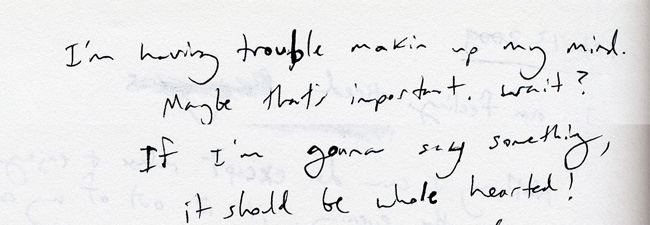 I'm having trouble makin up my mind.
Maybe that's important. wait?
If I'm gonna say something,
it should be whole hearted!